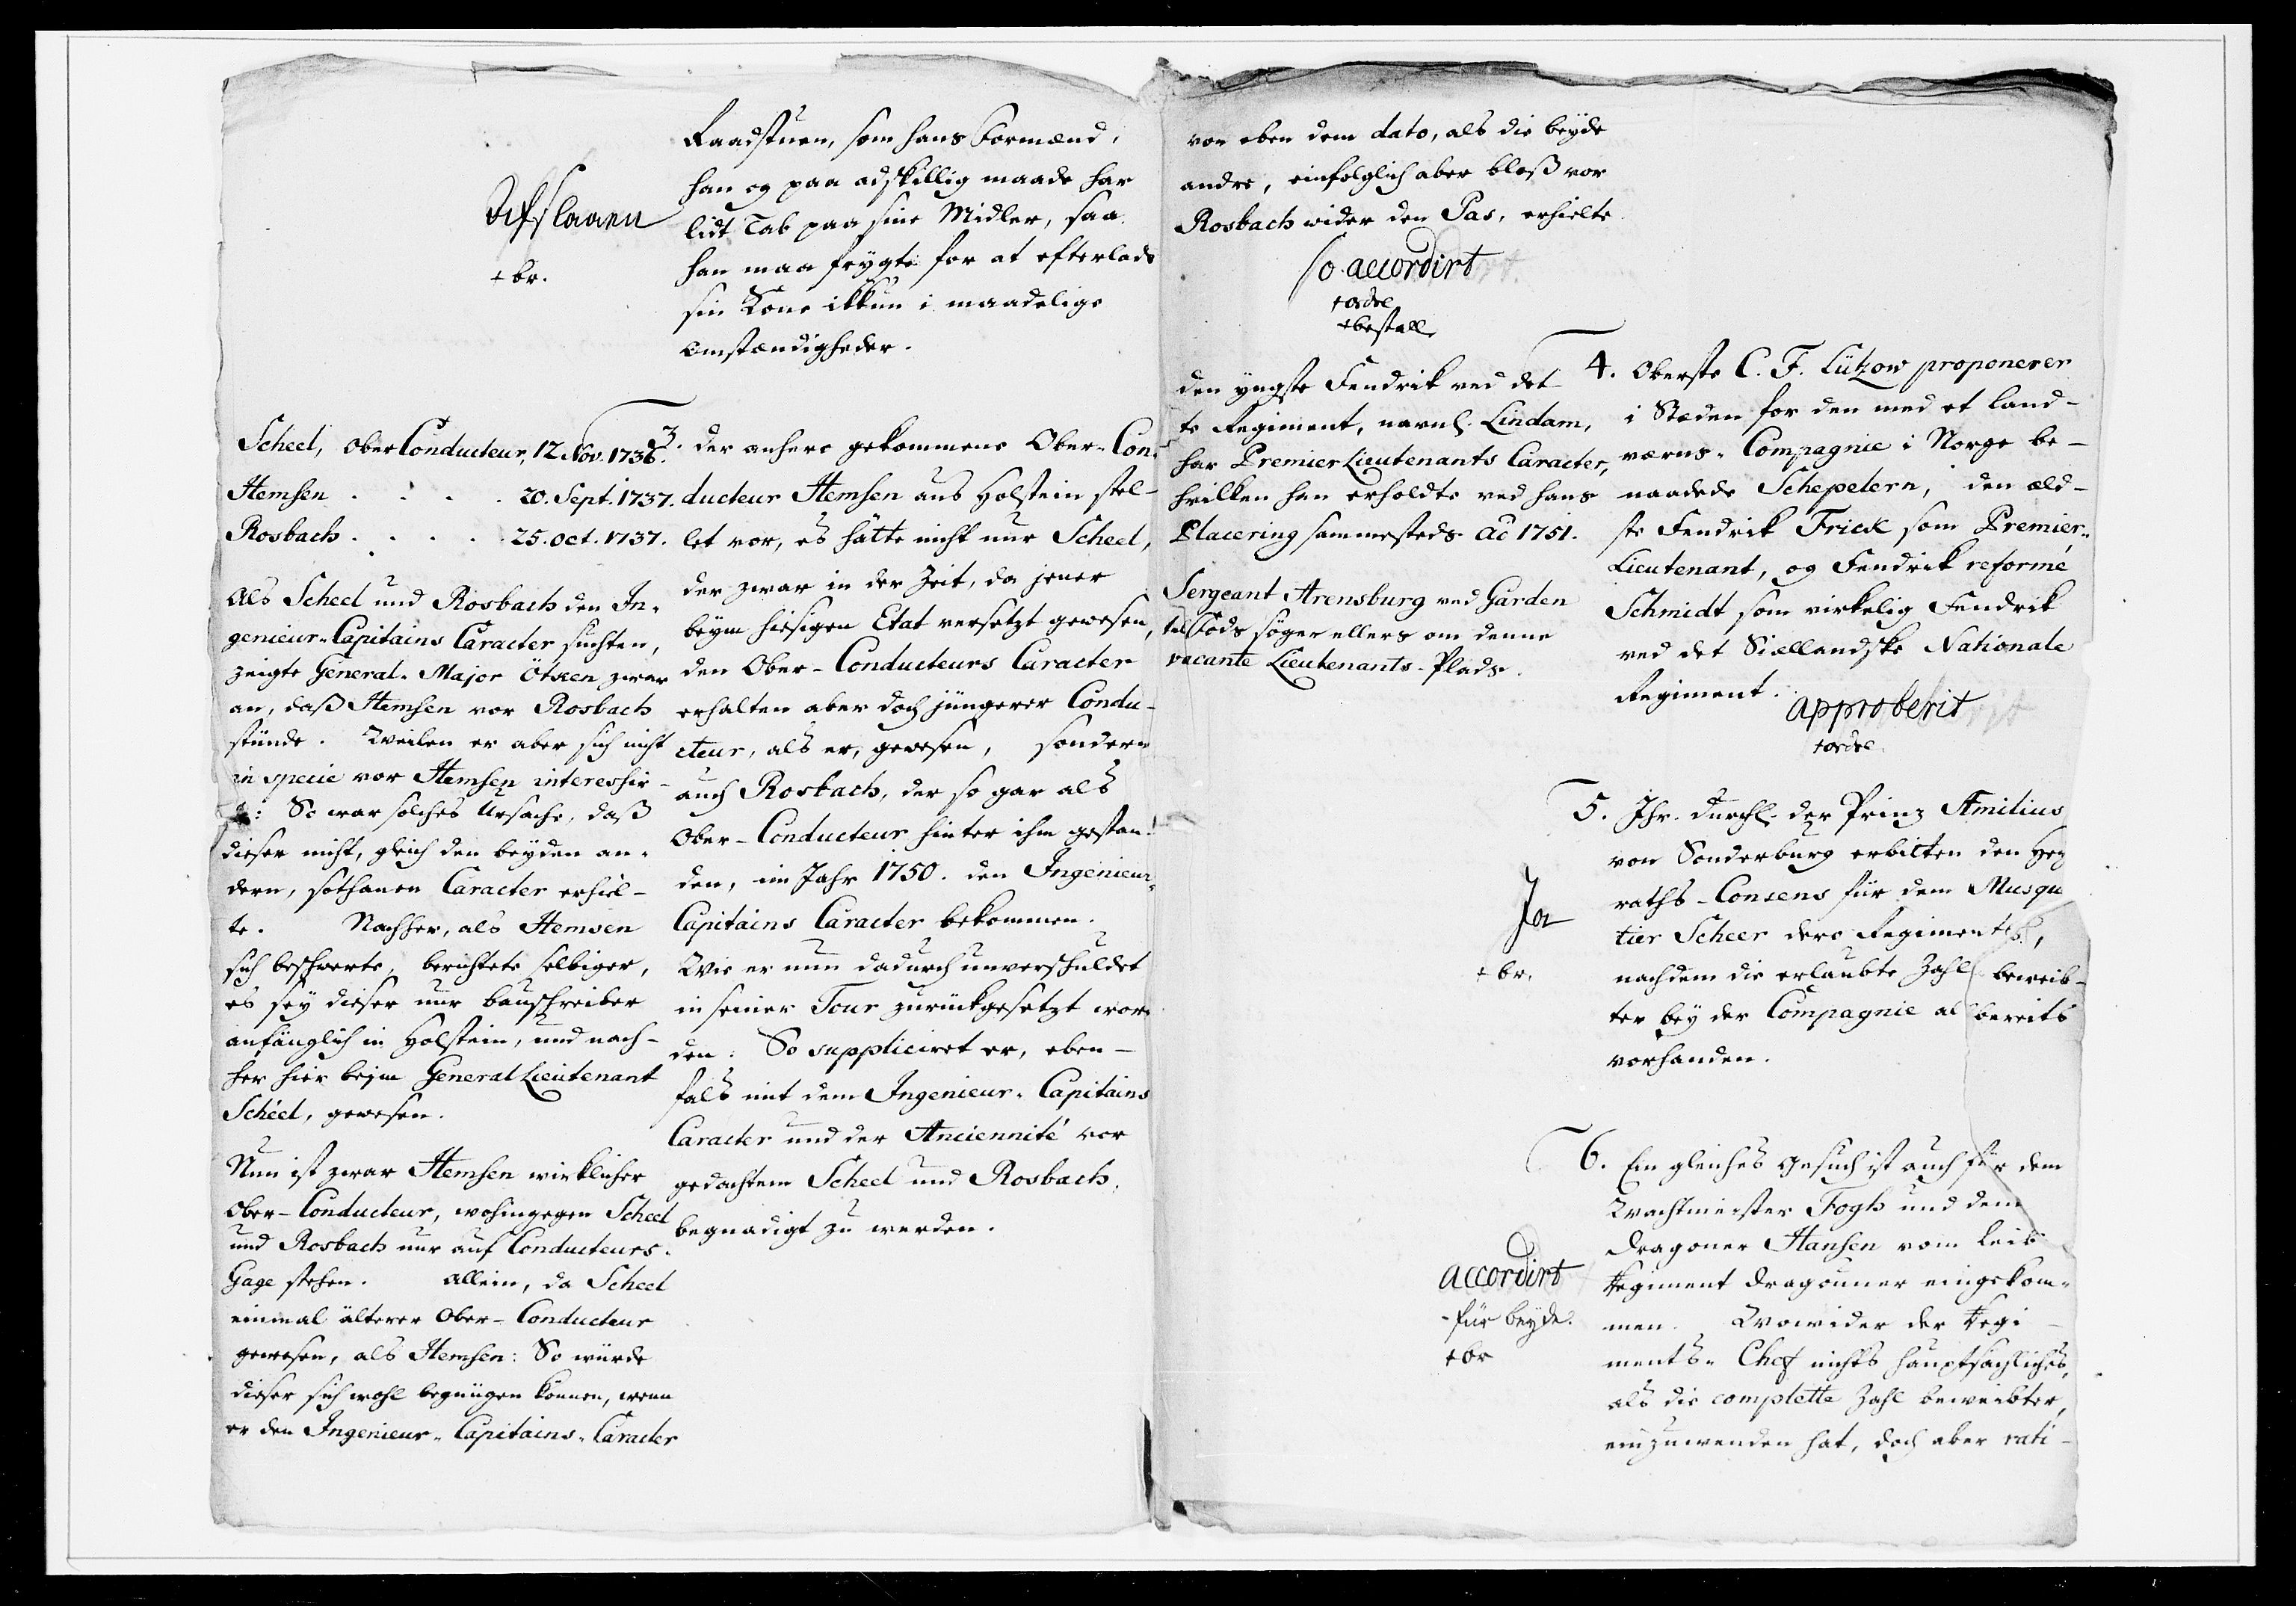 Raadstuen, som hans Formænd,
han og paa adskillig maade har
lidt Tab paa sine Midler, saa
han maa frygte for at efterlade
sin Kone ikkun i maadelige
Omstændigheder.
Afslaaen
+ br.
Scheel, Ober Conducteur, 12 Nov. 1736.
Hemsen . . . . 20. Sept. 1737.
Rosbach . . . . 25. oct. 1737.
Als Scheel und Rosbach den In-
genieur-Capitains Caracter suchten,
zeigte General-Major Ötken zwar
an, daß Hemsen vor Rosbach
stünde. Weilen er aber sich nicht
in specie vor Hemsen interessir-
te: So war solches Ursache, daß
dieser nicht, gleich den beyden an-
dern, sothanen Caracter erhiel-
te. Nachher, als Hemsen
sich beschwerte, berichtete selbiger,
es sey dieser nur Bauschreiber
anfänglich in Holstein, und nach-
her hier beym General Lieutenant
Scheel, gewesen.
Nun ist zwar Hemsen wirklicher
Ober-Conducteur, wohingegen Scheel
und Rosbach nur auf Conducteurs-
Gage stehen. Allein, da Scheel
einmal älterer Ober-Conducteur
gewesen, als Hemsen: So würde
dieser sich wohl begnügen können, wenn
er den Ingenieur-Capitains-Caracter
3. Der anhero gekommene Ober-Con-
ducteur Hemsen aus Holstein stel-
let vor, es hätte nicht nur Scheel,
der zwar in der Zeit, da jener
beym hiesigen Etat versetzt gewesen,
den Ober-Conducteurs Caracter
erhalten aber doch jüngerer Condu-
cteur, als er, gewesen, sondern
auch Rosbach, der so gar als
Ober-Conducteur hinter ihm gestan-
den, im Jahr 1750. den Ingenieur-
Capitains Caracter bekommen.
Wie er nun dadurch unverschuldet
in seiner Tour zurückgesetzt wor-
den: So suppliciret er, eben-
fals mit dem Ingenieur-Capitains
Caracter und der Anciennité vor
gedachtem Scheel und Rosbach,
begnadigt zu werden.
von eben dem dato, als die beyde
andre, einfolglich aber bloß vor
Rosbach wider den Pas, erhielte
so accordirt
+ ordre
+ bestall.
den yngste Fendrik ved det-
te Regiment, navnl. Lindam,
har Premier Lieutenants Caracter,
hvilken han erholdte ved hans
Placering sammesteds Aō 1751.
Sergeant Arensburg ved Garden
til Fods søger ellers om denne
vacante Lieutenants-Plads.
4. Oberste C. F. Lützow proponerer
i Stæden for den med et Land-
værns-Compagnie i Norge be-
naadede Schepelern, den æld-
ste Fendrik Frick som Premier-
Lieutenant, og Fendrik reformé
Schmidt som virkelig Fendrik
ved det Siællandske Nationale
Regiment.
approberit
+ ordre
5. Ihr. Durchl. der Prinz Æmilius
von Sonderburg erbitten den Hey
raths-Consens für dem Musqu
tier Scheer dero Regiments,
nachdem die erlaubte Zahl beweib-
ter bey der Compagnie al bereits
vorhanden.
Ja
+ br.
6. Ein gleiches Gesuch ist auch für dem
Wachtmeister Fogh und dem
Dragoner Hansen vom Leib
Regiment Dragouner eingekom-
men. Wowider der Regi-
ments-Chef nichts hauptsächliches,
als die complette Zahl beweibter,
einzuwenden hat, doch aber rati-
accordirt
für beyde.
+ br